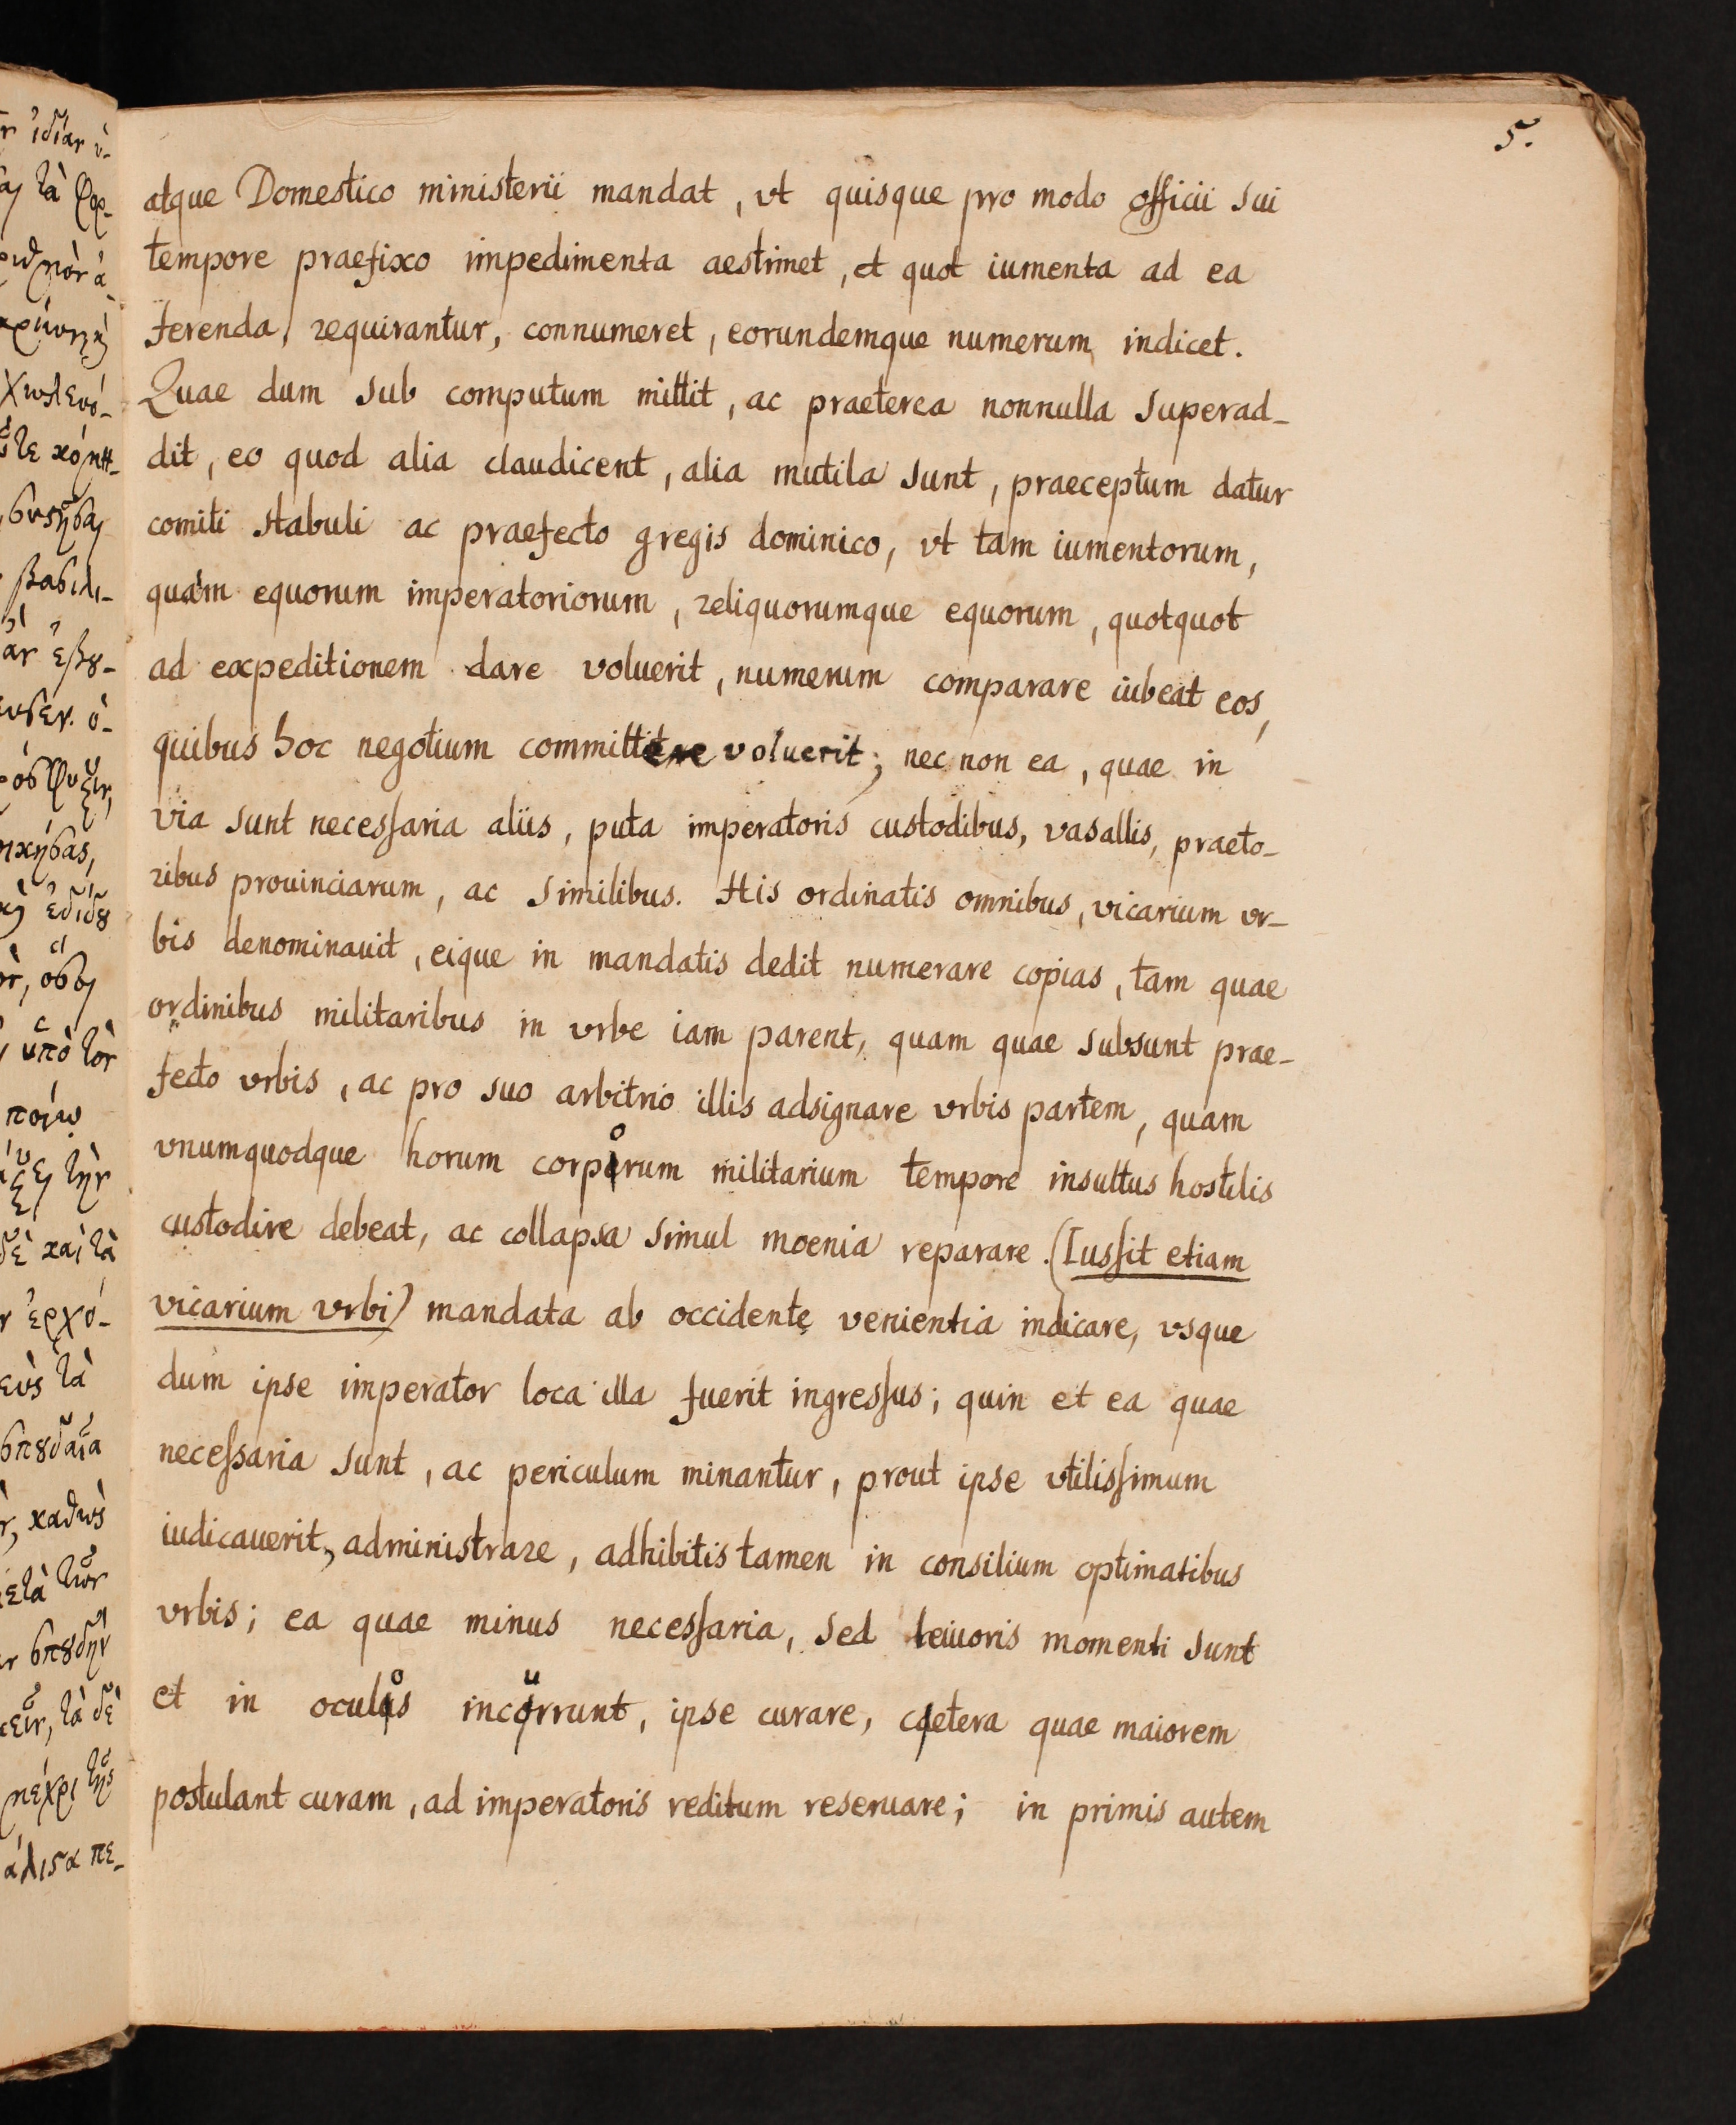 5.
atque Domestico ministerii mandat, vt quisque pro modo officii sui
tempore praefixo impedimenta aestimet, et quot iumenta ad ea
ferenda, requirantur, connumeret, eorundemque numerum indicet.
Quae dum sub computum mittit, ac praeterea nonnulla superad-
dit, eo quod alia claudicent, alia mutila sunt, praeceptum datur
comiti stabuli ac praefecto gregis dominico, vt tam iumentorum,
quàm equorum imperatoriorum, reliquorumque equorum, quotquot
ad expeditionem dare voluerit, numerum comparare iubeat eos,
quibus hoc negotium committere voluerit; nec non ea, quae in
via sunt necessaria aliis, puta imperatoris custodibus, vasallis, praeto-
ribus prouinciarum, ac similibus. His ordinatis omnibus, vicarium vr-
bis denominauit, eique in mandatis dedit numerare copias, tam quae
ordinibus militaribus in vrbe iam parent, quam quae subsunt prae-
fecto vrbis, ac pro suo arbitrio illis adsignare vrbis partem, quam
vnumquodque horum corporum militarium tempore insultus hostilis
custodire debeat, ac collapsa simul moenia reparare. (Iussit etiam
vicarium vrbi) mandata ab occidente venientia indicare, vsque
dum ipse imperator loca illa fuerit ingressus; quin et ea quae
necessaria sunt, ac periculum minantur, prout ipse vtilissimum
iudicauerit, administrare, adhibitis tamen in consilium optimatibus
vrbis; ea quae minus necessaria, sed leuioris momenti sunt
et in oculos incurrunt, ipse curare, cetera quae maiorem
postulant curam, ad imperatoris reditum reseruare; in primis autem